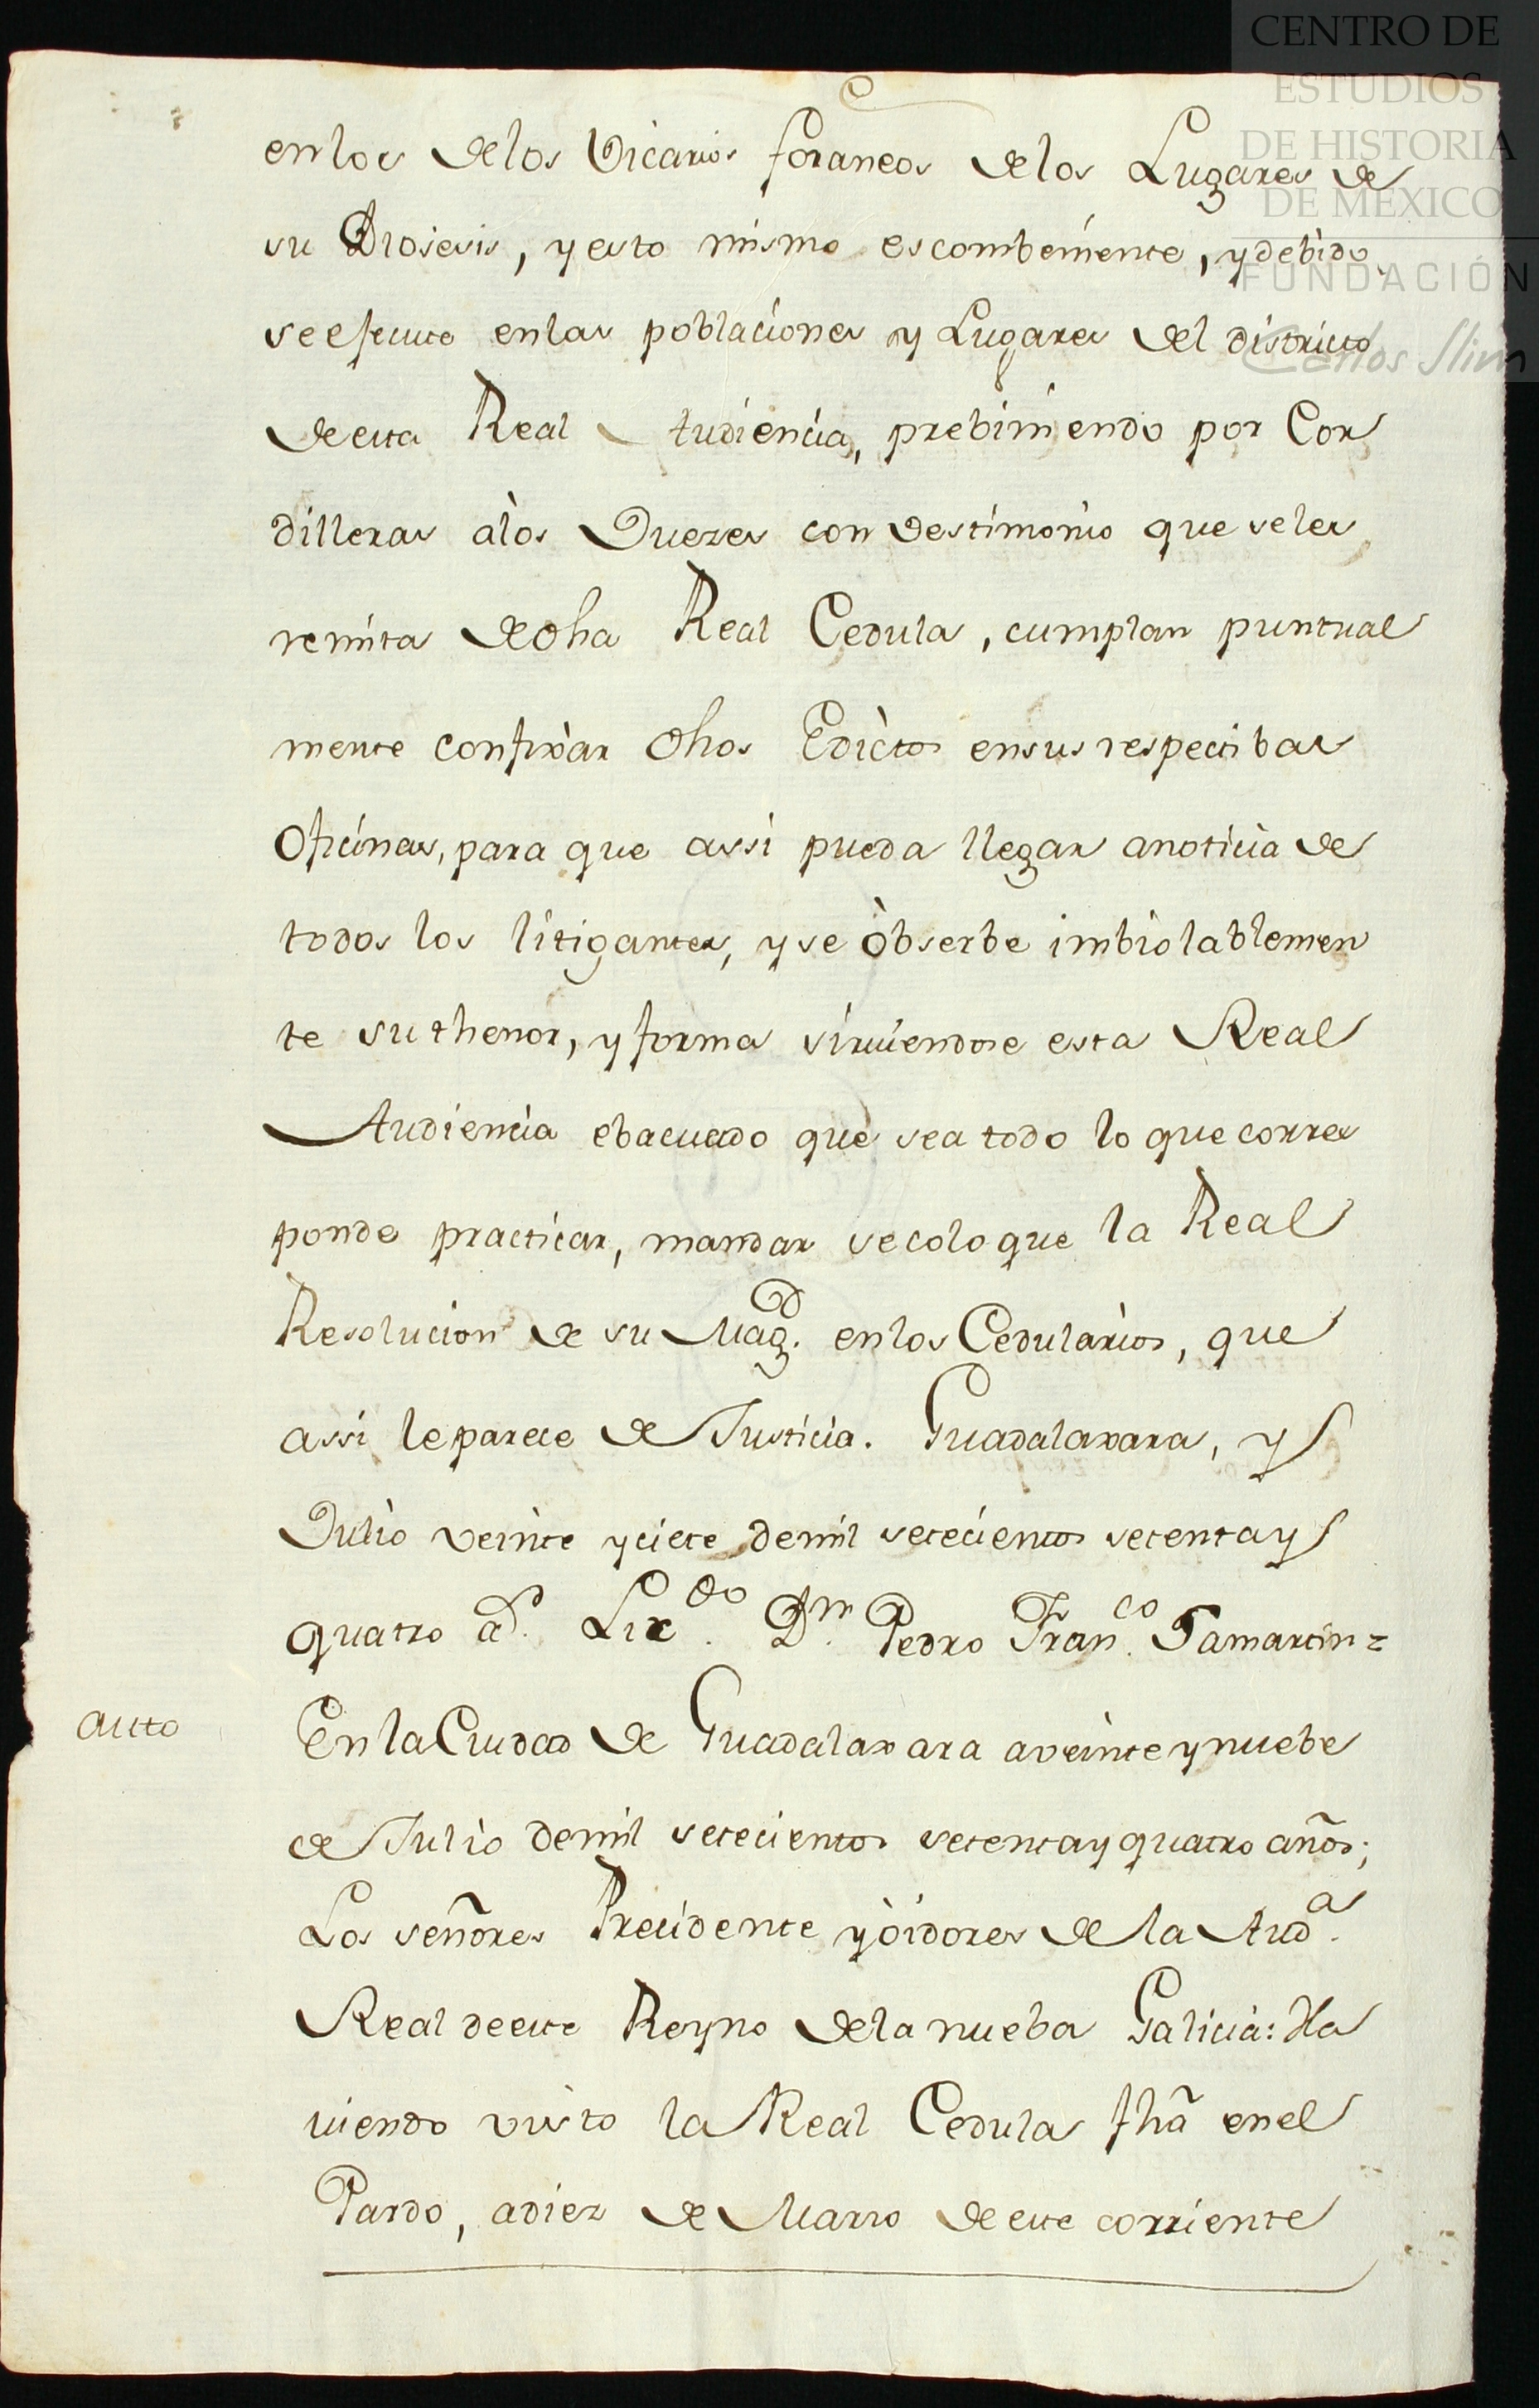 CENTRO DE
ESTUDIOS
DE HISTORIA
DE MÉXICO
FUNDACIÓN
Carlos Slim
en los de los Vicarios foraneos de los Lugares de
su Diosesis, y esto mismo es combeniente, y debido
se efecute en las poblaciones y Lugares del districto
de esta Real Audiencia, prebiniendo por Cor
dilleras â los Juezes con testimonio que se les
remita de dha Real Cedula, cumplan puntual
mente con fixàr dhos Edictos en sus respectibas
Oficinas, para que assi pueda llegar a noticia de
todos los litigantes, y se òbserbe imbiolablemen
te su thenor, y forma sirviendose esta Real
Audiencia ebacuado que sea todo lo que corres
ponde practicar, mandar se coloque la Real
Resolucion de su Magd. en los Cedulàrios, que
assi le parece de Justicia. Guadalaxara, y
Julio veinte y ciete de mil setecientos setenta y
quatro as. Lixdo. Dn. Pedro Franco. Samartin=
auto
En la Ciudad de Guadalaxara a veinte y nuebe
de Julio de mil setecientos setenta y quatro años;
Los señores Precidente y òidores de la Auda.
Real de este Reyno de la nueba Galicia: Ha
viendo visto la Real Cedula fhã en el
Pardo, a diez de Marzo de este corriente